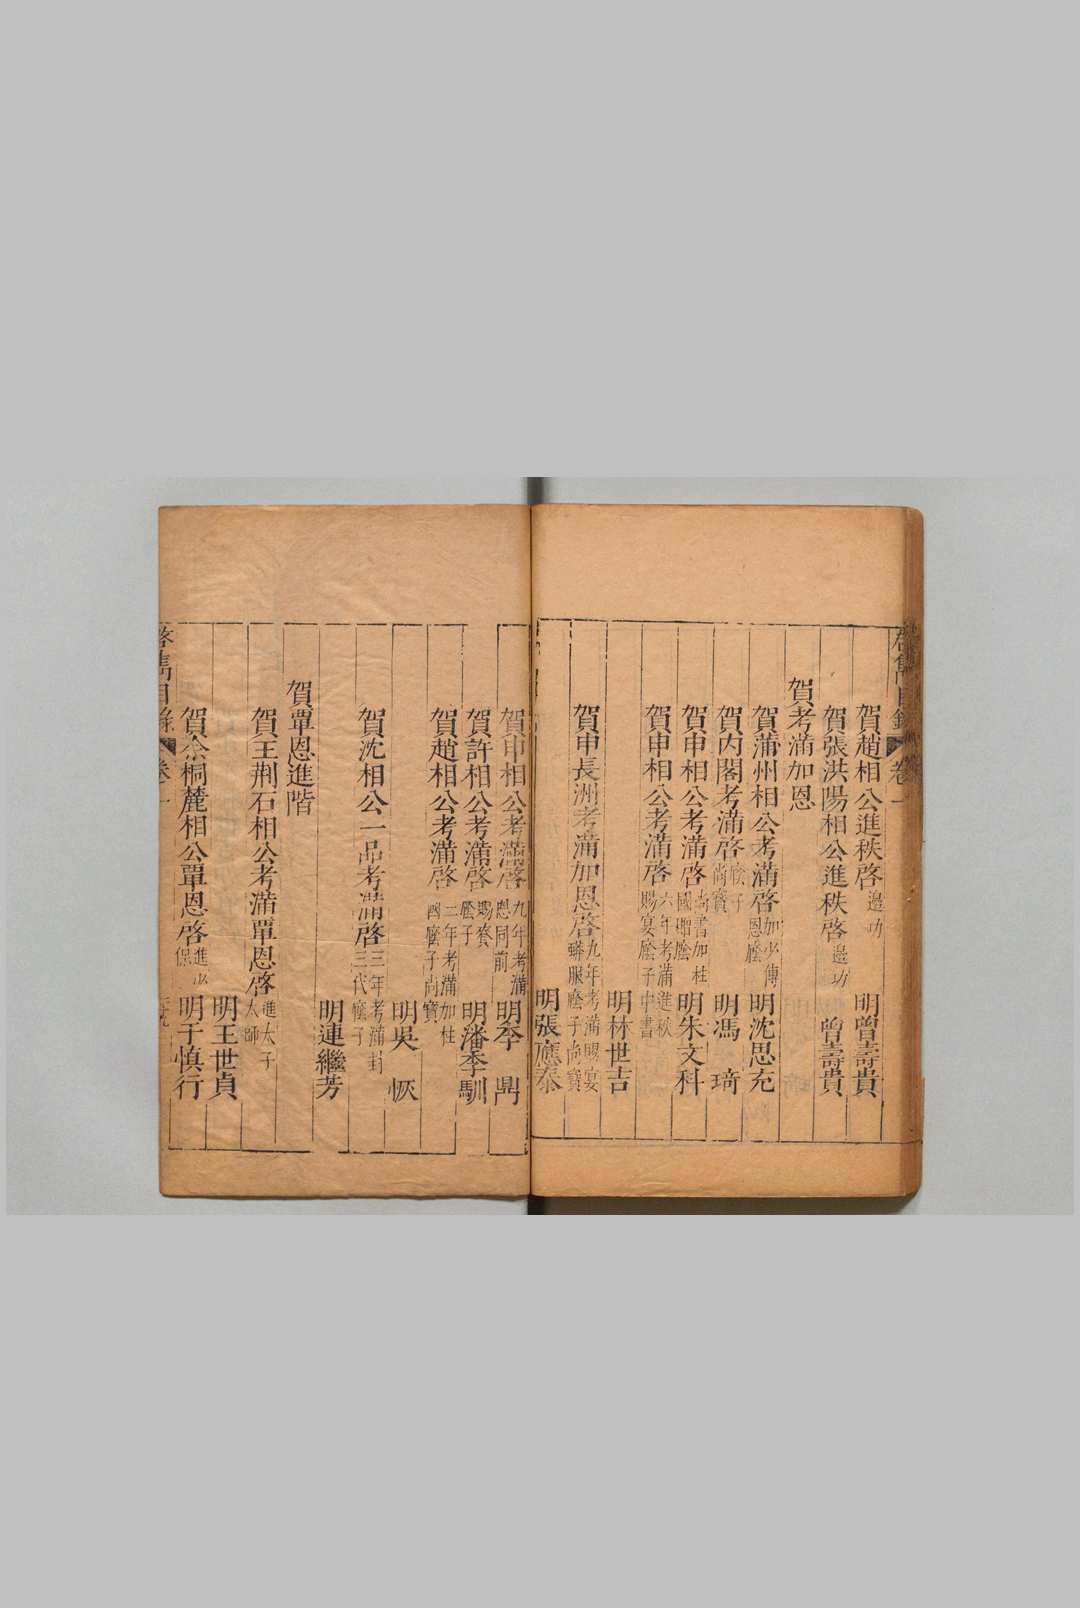 啓雋目錄 卷一
賀趙相公進秩啓 邊功 明曾壽貴
賀張洪陽相公進秩啓 邊功 曾壽貴
賀考滿加恩
賀蒲州相公考滿啓 加少傅恩廕 明沈思充
賀内閣考滿啓 廕子尚寶 明馮 琦
賀申相公考滿啓 尚書加柱國贈廕 明朱文科
賀申相公考滿啓 六年考滿進秩賜宴廕子中書
明林世吉
賀申長洲考滿加恩啓 九年考滿賜宴蟒服廕子尚寶
明張應泰
賀申相公考滿啓 九年考滿恩同前 明李 鼎
賀許相公考滿啓 賜賚廕子 明潘季馴
賀趙相公考滿啓 二年考滿加柱國廕子尚寶
明吳 恢
賀沈相公一品考滿啓 三年考滿封三代廕子
明連繼芳
賀覃恩進階
賀王荆石相公考滿覃恩啓 進太子太師
明王世貞
賀余桐麓相公覃恩啓 進少保 明于慎行
啓雋目錄 卷一